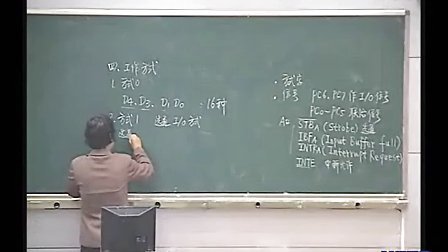 四. 工作方式
1. 方式0
D4、D3、D1 D0 : 16种
2. 方式1 选通 I/O 方式
选通
· 方式字
· 信号 PC6、PC7 作 I/O 信号
PC0-PC5 联络信号
A组 STBA (Strobe) 选通
IBFA (Input Buffer full)
INTRA (Interrupt Request)
INTE 中断允许